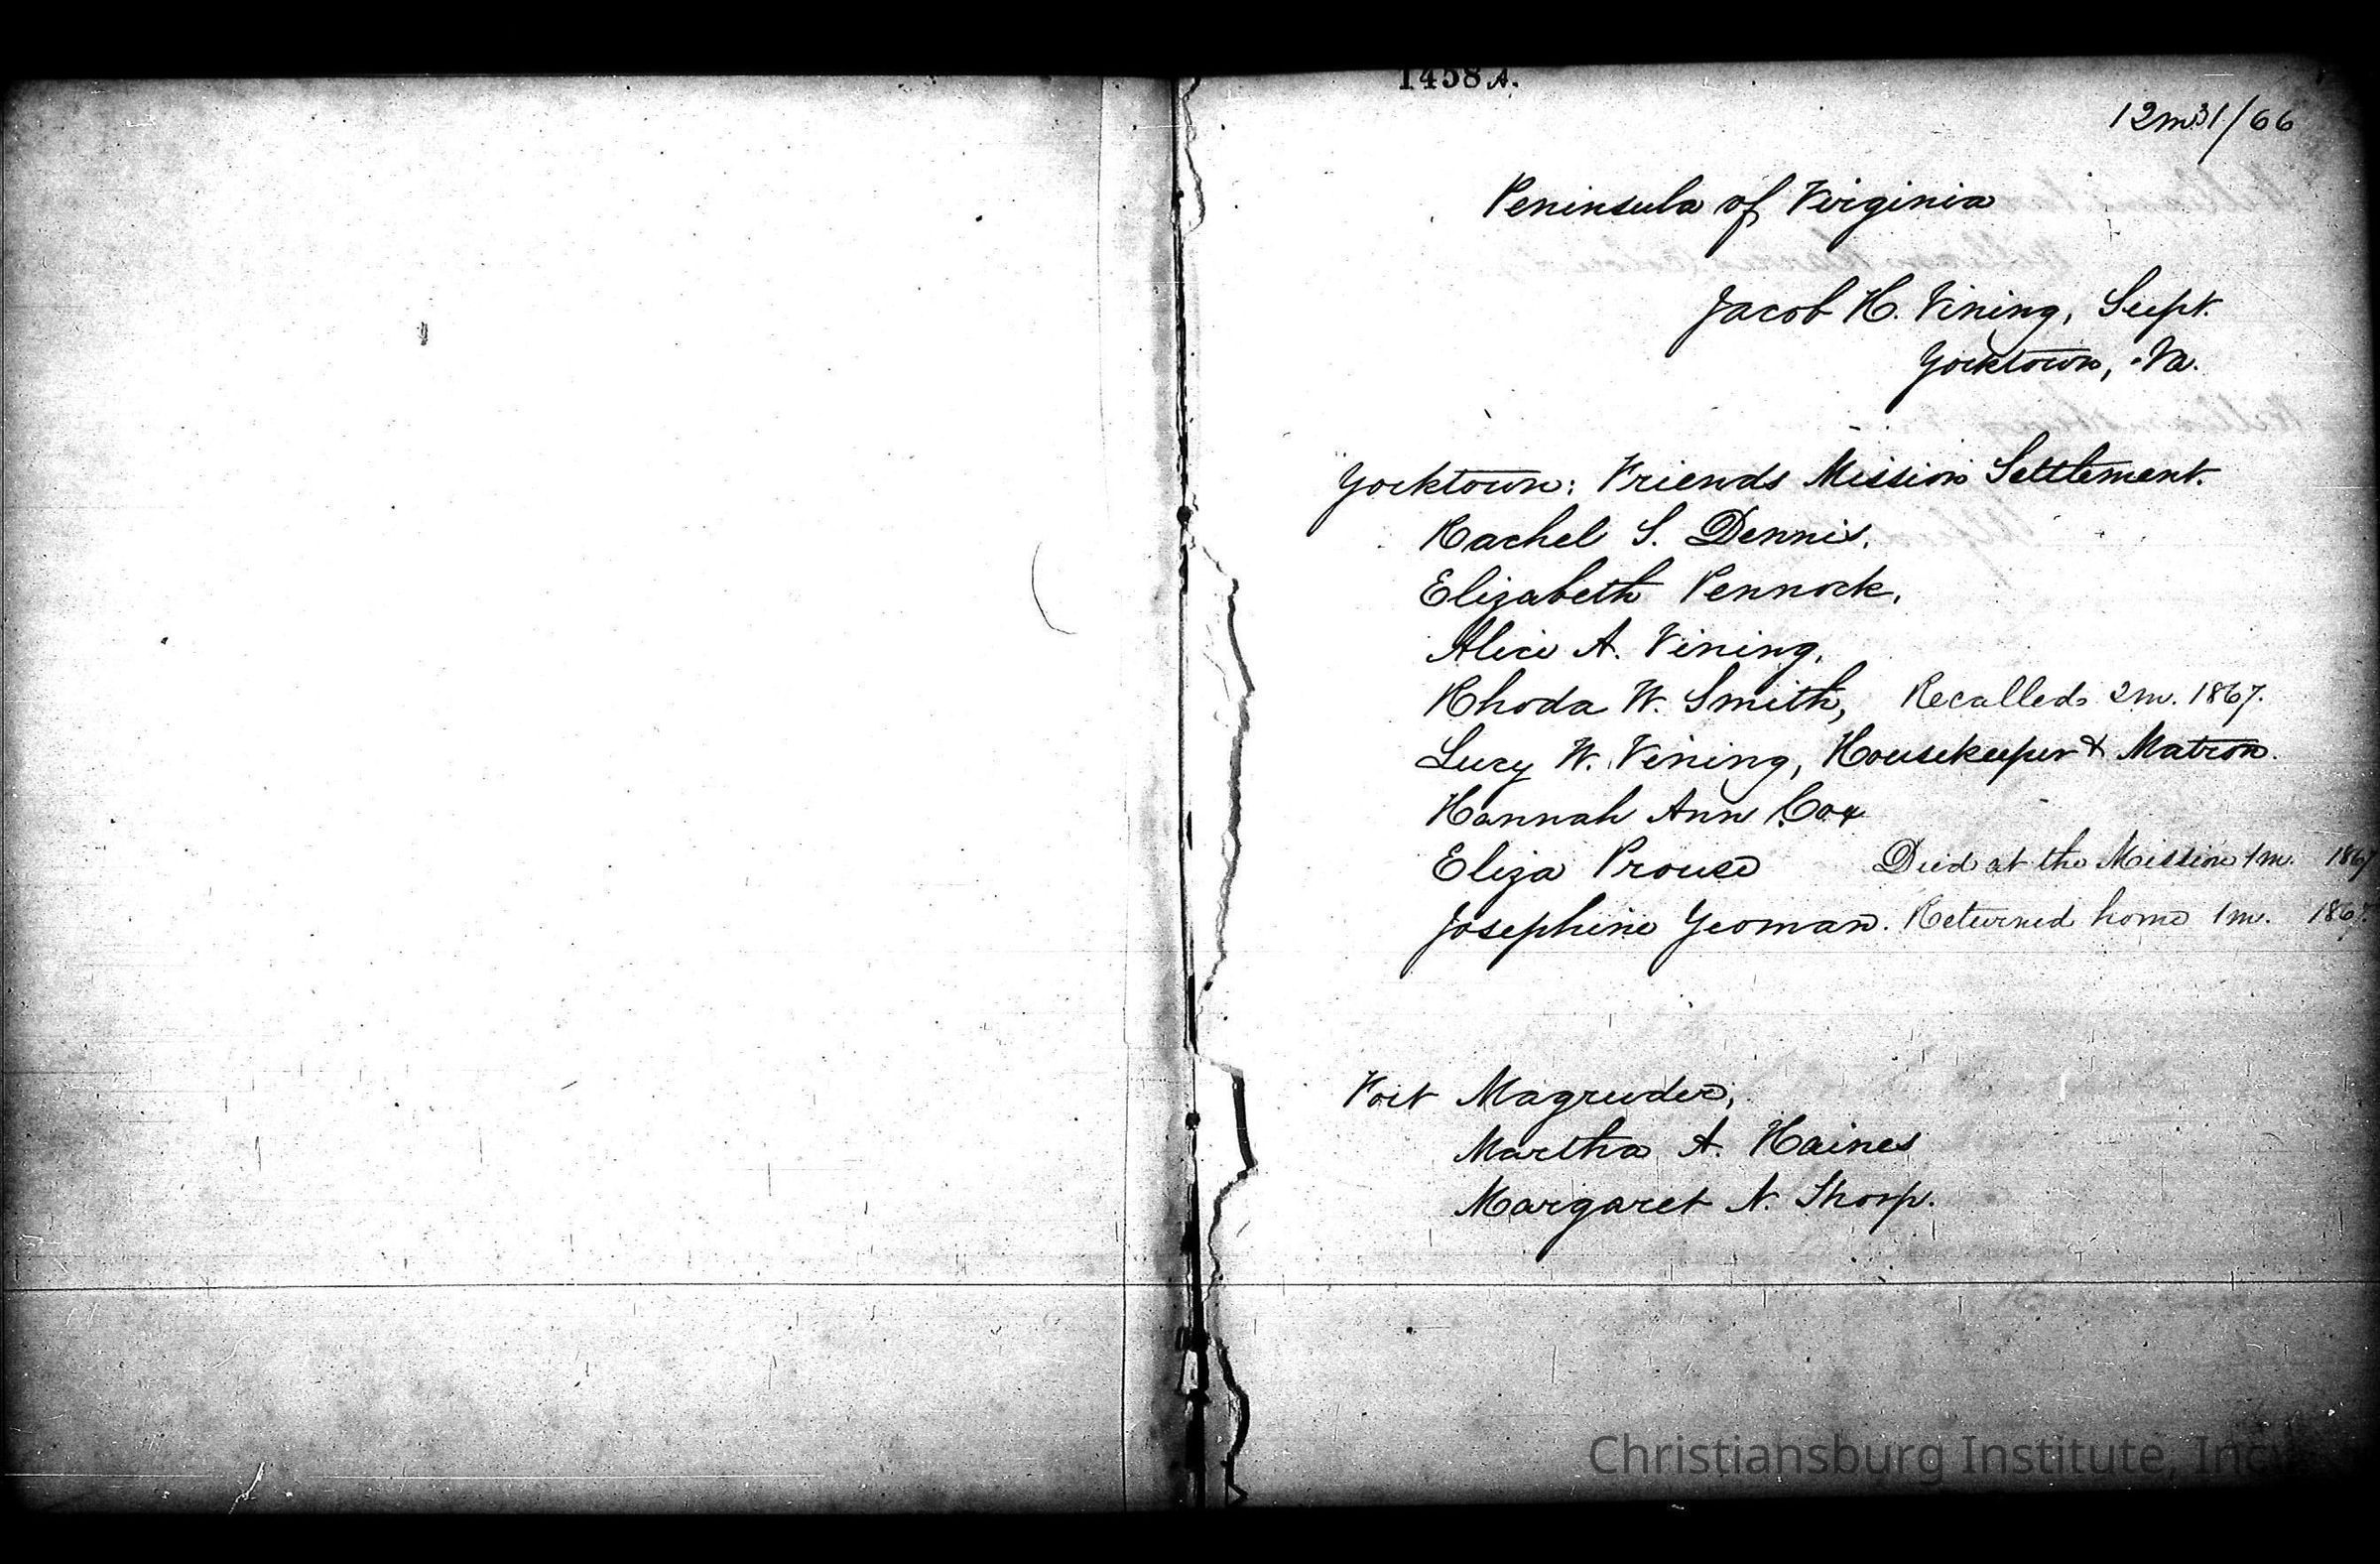 1458 A.
12m31/66
Peninsula of Virginia
Jacob H. Vining, Supt.
Yorktown, Va.
Yorktown: Friends Mission Settlement.
Rachel S. Dennis,
Elizabeth Pennock,
Alice A. Vining,
Rhoda W. Smith, Recalled 2m. 1867.
Lucy W. Vining, Housekeeper & Matron.
Hannah Ann Cox
Eliza Prouse Died at the Mission 1m. 1867
Josephine Yeoman. Returned home 1m. 1867.
Fort Magruder,
Martha A. Haines
Margaret N. Thorp.
Christiansburg Institute, Inc.